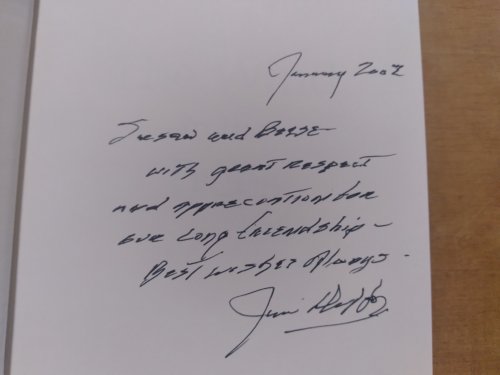 January 2002
Susan and
with great respect
and appreciation for
our long friendship –
Best wishes Always.
Jim